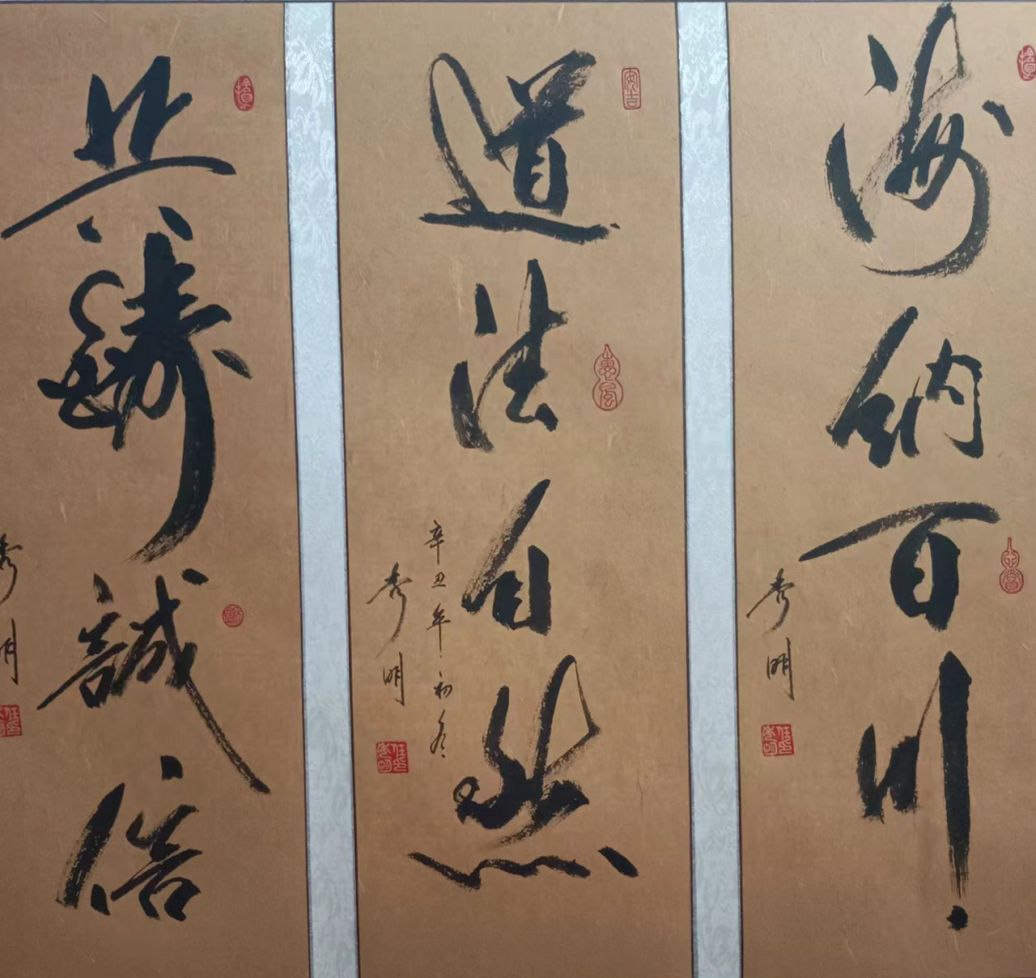 海纳百川
秀明
道法自然
辛丑年初冬
秀明
共鑄誠信
秀明